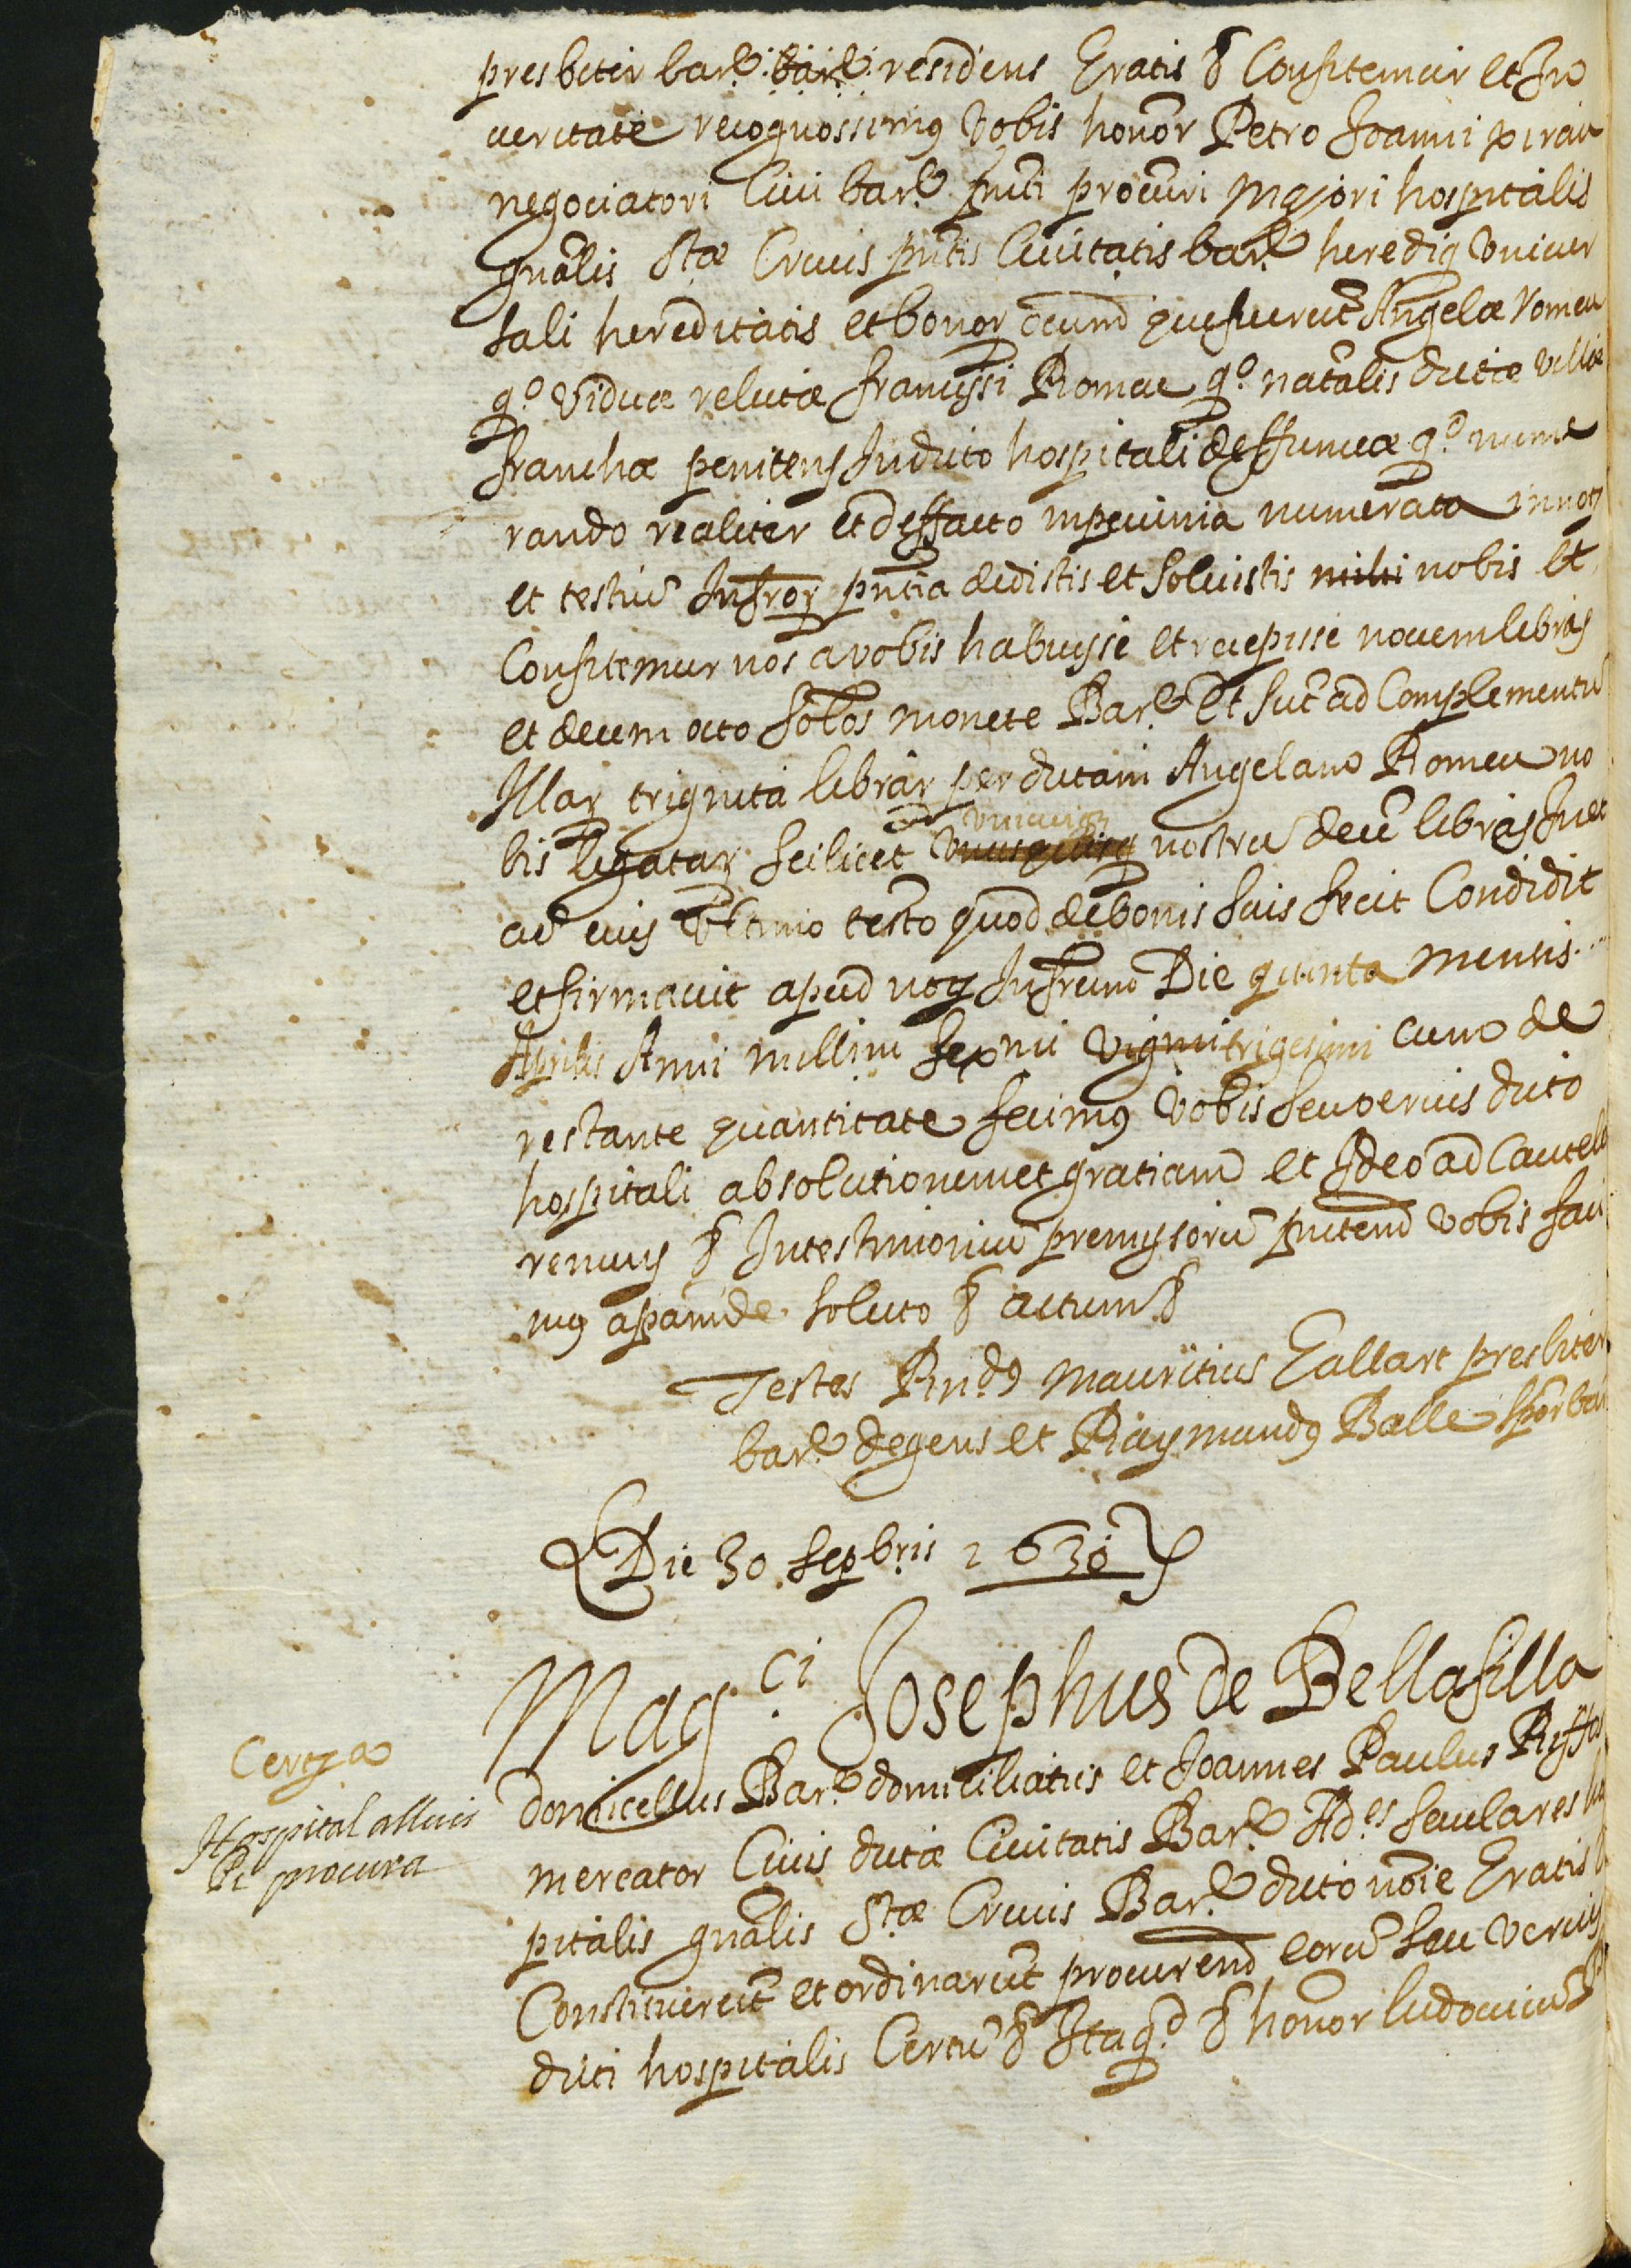 presbiter bar.e bar.e residens Gratis & Confitemur et In
veritate recognossimus vobis honor Petro Joanni
negociatori Civi bar.e pnti procuri Majori hospitalis
gnalis Stæ Crucis pntis Civitatis bar.e heredique univer
sali hereditatis et bonor oeumd que fuerut Angelæ romeu
qo viduæ relictæ francissi Romeu qo naturalis dictæ villæ
franchæ penitens In dicto hospitali deffunctæ qo nume
rando realiter et deffacto in pecunia numerata in notz
et testiu Infror pntia dedistis et soluistis mihi nobis et
Confitemur nos a vobis habuysse et recepisse novem libras
et decem octo solos monete Bar.e Et sut ad Complementu
Illar triginta librar per dictam Angelam Romeu no
bis legatar scilicet unusquisq unicuiq nostru dece libras In et
ad eius ultimo testo quod de bonis suis fecit Condidit
et firmavit apud noq Infrum Die quinta mensis
Aprilis Anni millimi sexmi viginti trigesimi cum de
restante quantitate fecimus vobis seu verius dicto
hospitali absolutionem et gratiam et Ideo ad Cautela
renuns & In testimonium premyssoru pntend vobis faci
mus apamde soluto & actum &
Testes Rnds Mauritius Gallart presbiter
bar.e degens et Raymundus Balle spor bar
Die 30 Sepbris 1630
Mag.ci Josephus de Bellafilla
Certza
domicellus Bar.e domiciliatus et Joannes Paulus Riffos
Hospital alluis
Pe procura
mercator Civis dictæ Civitatis Bar.e Ad.es seculares hos
pitalis gnalis Stæ Crucis Bar.e dicto noie Gratis
Constituerut et ordinarut procurend eoru seu verius
dicti hospitalis Certu & Itaq.d & honor ludovicum